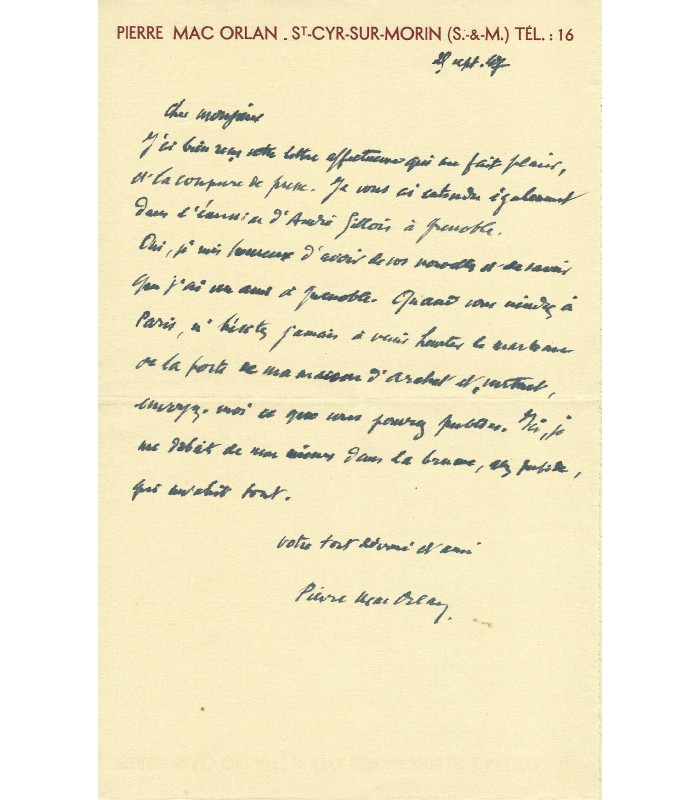 PIERRE MAC ORLAN . ST-CYR-SUR-MORIN (S.-&-M.) TÉL. : 16
sept. 47
Cher monsieur
J'ai bien reçu votre lettre affectueuse qui me fait plaisir,
et la coupure de presse. Je vous ai entendu également
dans l'émission d'André Gillois à Grenoble.
Oui, je suis heureux d'avoir de vos nouvelles et de savoir
que j'ai un ami à Grenoble. Quand vous viendrez à
Paris, n'hésitez jamais à venir heurter le marteau
de la porte de ma maison d'Archet et, surtout,
envoyez-moi ce que vous pourrez publier. Ici, je
me débats de mon mieux dans la brume,
qui envahit tout.
votre tout dévoué et ami
Pierre Mac Orlan.